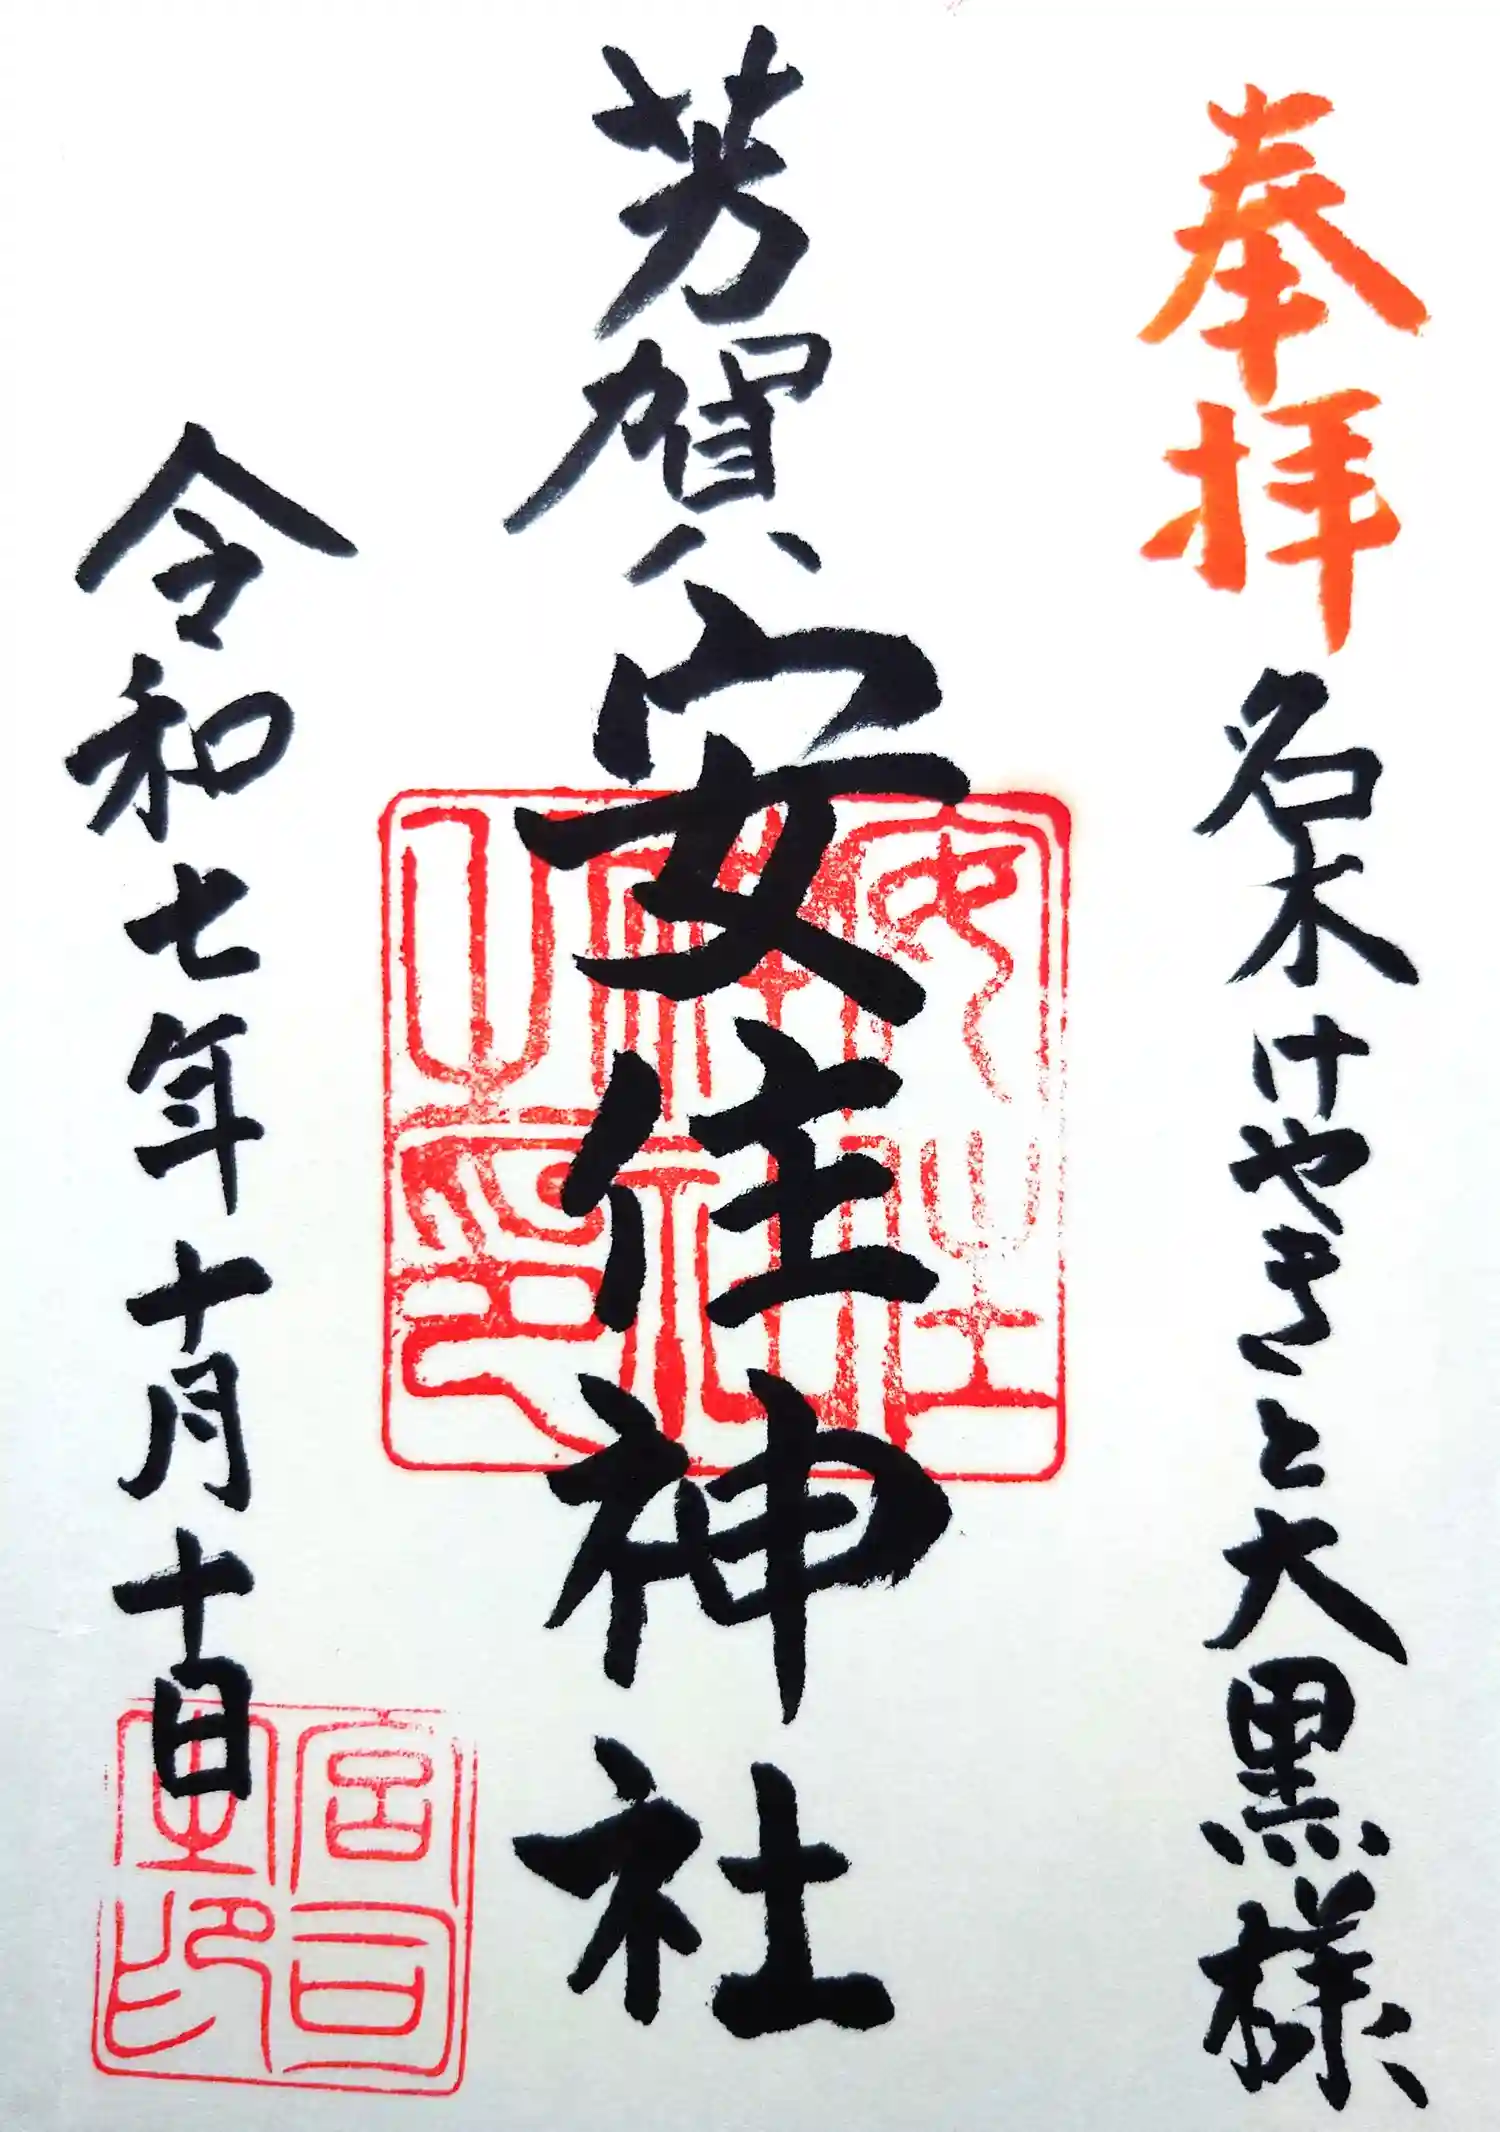 奉拝 名木けやきと大黒様
芳賀 安住神社
安住神社之印
令和七年十月十日
宮司之印